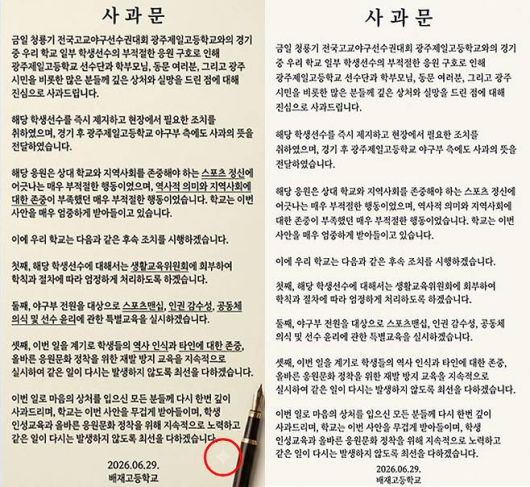 사과문
금일 청룡기 전국고교야구선수권대회 광주제일고등학교와의 경기
중 우리 학교 일부 학생선수의 부적절한 응원 구호로 인해
광주제일고등학교 선수단과 학부모님, 동문 여러분, 그리고 광주
시민을 비롯한 많은 분들께 깊은 상처와 실망을 드린 점에 대해
진심으로 사과드립니다.
해당 학생선수를 즉시 제지하고 현장에서 필요한 조치를
취하였으며, 경기 후 광주제일고등학교 야구부 측에도 사과의 뜻을
전달하였습니다.
해당 응원은 상대 학교와 지역사회를 존중해야 하는 스포츠 정신에
어긋나는 매우 부적절한 행동이었으며, 역사적 의미와 지역사회에
대한 존중이 부족했던 매우 부적절한 행동이었습니다. 학교는 이번
사안을 매우 엄중하게 받아들이고 있습니다.
이에 우리 학교는 다음과 같은 후속 조치를 시행하겠습니다.
첫째, 해당 학생선수에 대해서는 생활교육위원회에 회부하여
학칙과 절차에 따라 엄정하게 처리하도록 하겠습니다.
둘째, 야구부 전원을 대상으로 스포츠맨십, 인권 감수성, 공동체
의식 및 선수 윤리에 관한 특별교육을 실시하겠습니다.
셋째, 이번 일을 계기로 학생들의 역사 인식과 타인에 대한 존중,
올바른 응원문화 정착을 위한 재발 방지 교육을 지속적으로
실시하여 같은 일이 다시는 발생하지 않도록 최선을 다하겠습니다.
이번 일로 마음의 상처를 입으신 모든 분들께 다시 한번 깊이
사과드리며, 학교는 이번 사안을 무겁게 받아들이고, 학생
인성교육과 올바른 응원문화 정착을 위해 지속적으로 노력하고
같은 일이 다시는 발생하지 않도록 최선을 다하겠습니다.
2026.06.29.
배재고등학교
사과문
금일 청룡기 전국고교야구선수권대회 광주제일고등학교와의 경기
중 우리 학교 일부 학생선수의 부적절한 응원 구호로 인해
광주제일고등학교 선수단과 학부모님, 동문 여러분, 그리고 광주
시민을 비롯한 많은 분들께 깊은 상처와 실망을 드린 점에 대해
진심으로 사과드립니다.
해당 학생선수를 즉시 제지하고 현장에서 필요한 조치를
취하였으며, 경기 후 광주제일고등학교 야구부 측에도 사과의 뜻을
전달하였습니다.
해당 응원은 상대 학교와 지역사회를 존중해야 하는 스포츠 정신에
어긋나는 매우 부적절한 행동이었으며, 역사적 의미와 지역사회에
대한 존중이 부족했던 매우 부적절한 행동이었습니다. 학교는 이번
사안을 매우 엄중하게 받아들이고 있습니다.
이에 우리 학교는 다음과 같은 후속 조치를 시행하겠습니다.
첫째, 해당 학생선수에 대해서는 생활교육위원회에 회부하여
학칙과 절차에 따라 엄정하게 처리하도록 하겠습니다.
둘째, 야구부 전원을 대상으로 스포츠맨십, 인권 감수성, 공동체
의식 및 선수 윤리에 관한 특별교육을 실시하겠습니다.
셋째, 이번 일을 계기로 학생들의 역사 인식과 타인에 대한 존중,
올바른 응원문화 정착을 위한 재발 방지 교육을 지속적으로
실시하여 같은 일이 다시는 발생하지 않도록 최선을 다하겠습니다.
이번 일로 마음의 상처를 입으신 모든 분들께 다시 한번 깊이
사과드리며, 학교는 이번 사안을 무겁게 받아들이고, 학생
인성교육과 올바른 응원문화 정착을 위해 지속적으로 노력하고
같은 일이 다시는 발생하지 않도록 최선을 다하겠습니다.
2026.06.29.
배재고등학교